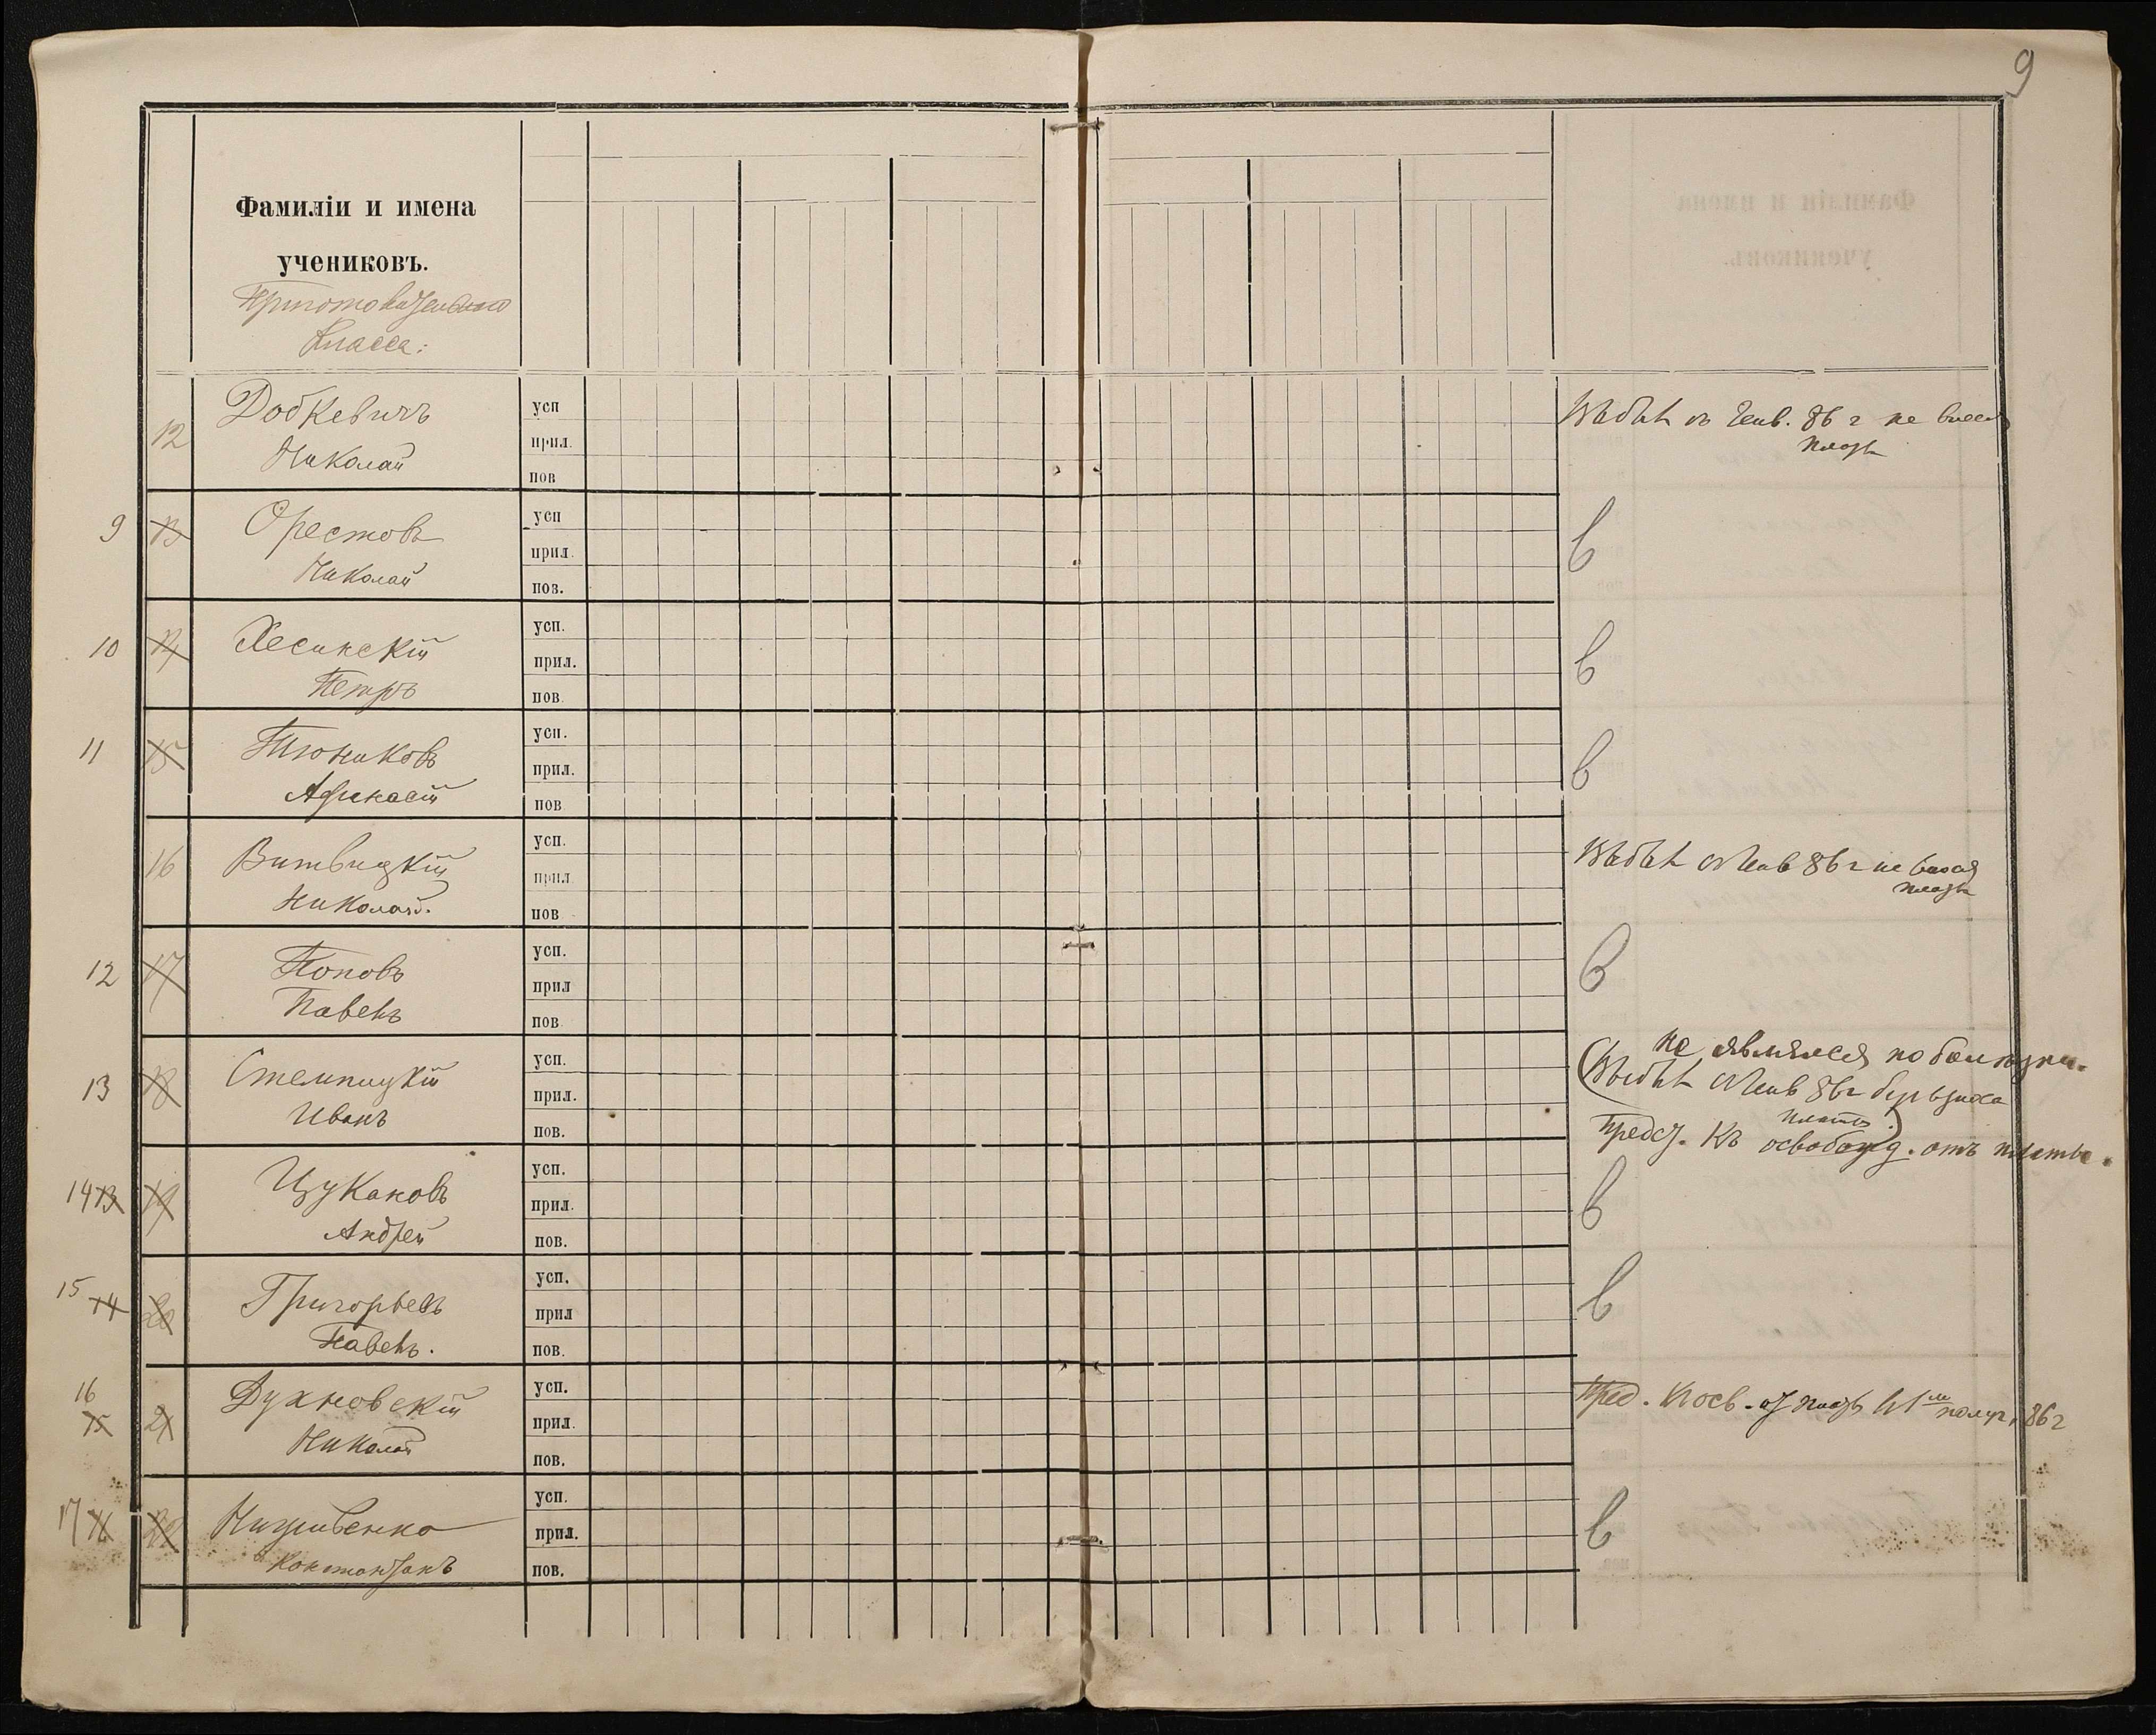 9
Фамиліи и имена
учениковъ.
Приготовительнаго
Класса:
12 Добкевичъ усп
Николай прил.
пов
Выбылъ съ Генв. 86 г не внеся
платы
9 13 Орестовъ усп
Николай прил.
пов.
в
10 14 Лесинскій усп.
Петръ прил.
пов.
в
11 15 Тюниковъ усп.
Афанасій прил.
пов
в
16 Витвицкій усп.
Николай. прил
пов
Выбылъ съ Генв 86 г не внося
платы
12 17 Поповъ усп.
Павелъ прил
пов.
в
13 18 Стемпицкій усп.
Иванъ прил.
пов.
не являлся по болѣзни.
(Выбылъ съ Генв 86 г безъ взноса
платы)
Предст. Къ освобожд. отъ платы.
14 13 19 Цукановъ усп.
Андрей прил.
пов.
в
15 14 20 Григорьевъ усп.
Павелъ. прил
пов.
в
16 15 21 Духновскій усп.
Николай прил.
пов.
Пред. къ осв. от платы 1 полуг. 86 г
17 16 22 усп.
Константинъ прил.
пов.
в